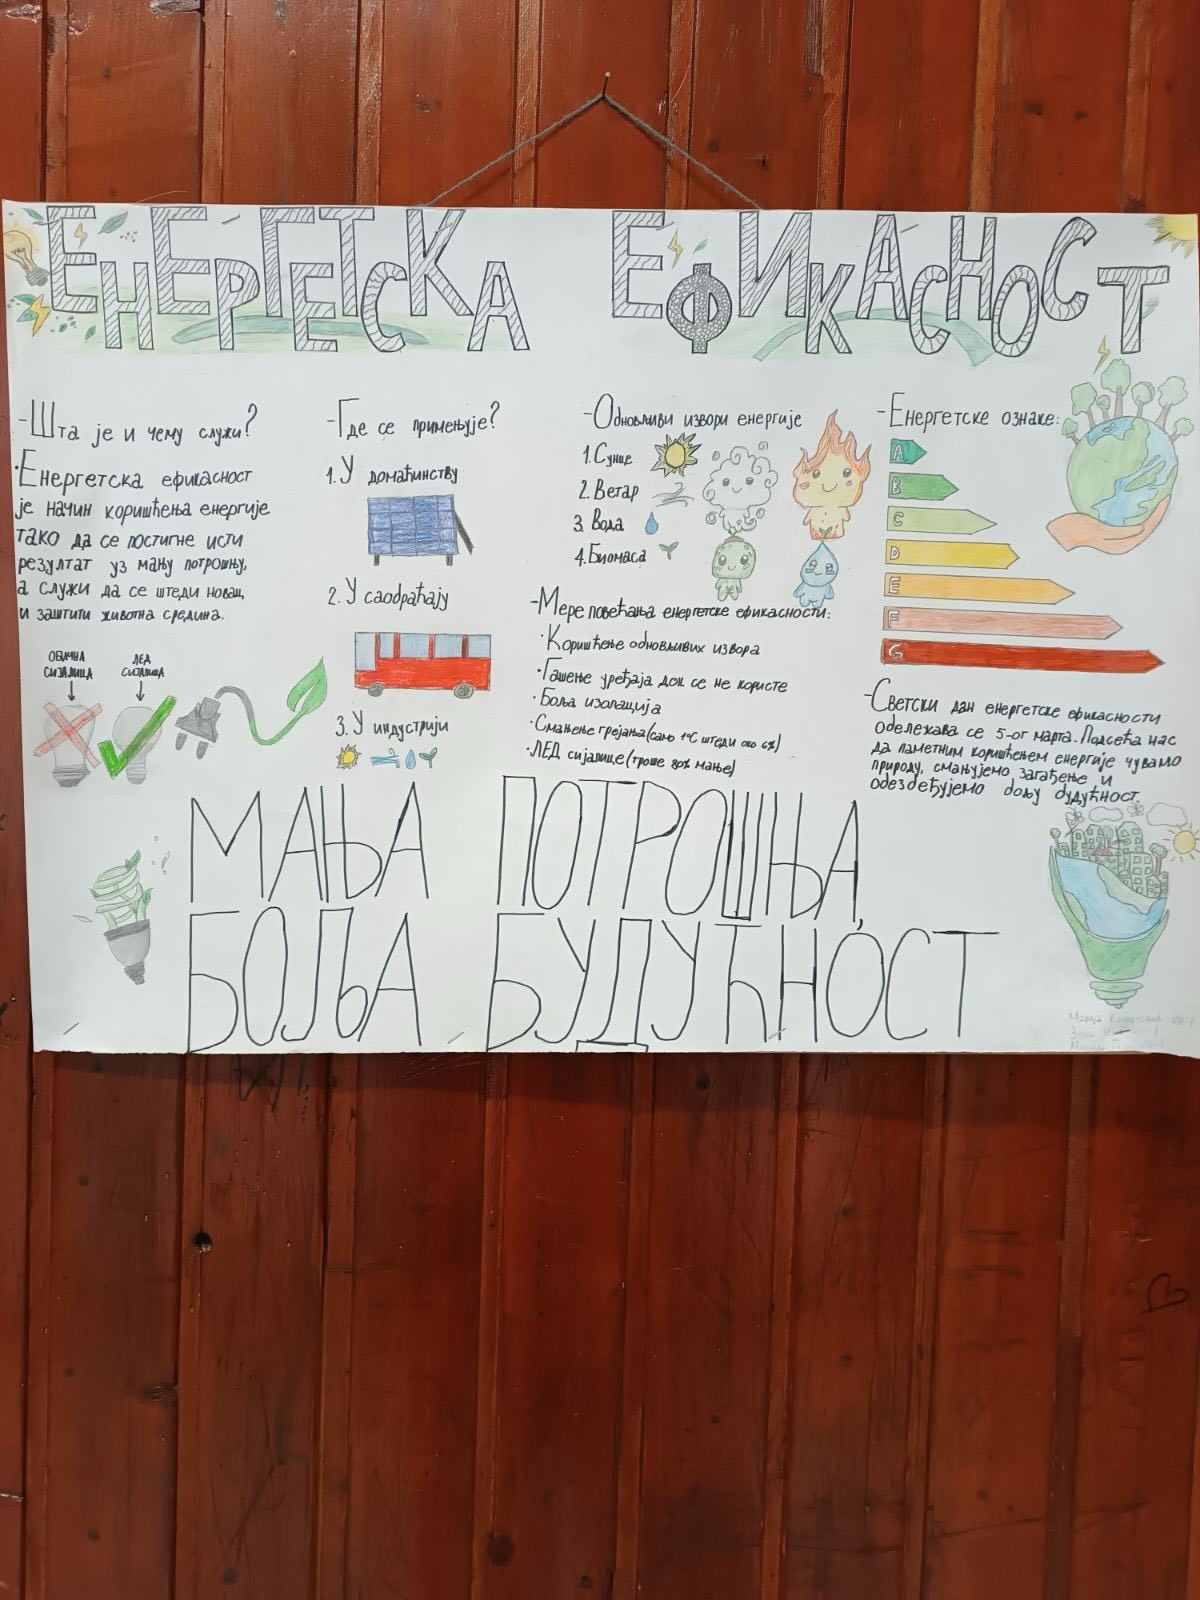 ЕНЕРГЕТСКА ЕФИКАСНОСТ
-Шта је и чему служи?
·Енергетска ефикасност
је начин коришћења енергије
тако да се постигне исти
резултат уз мању потрошњу,
а служи да се штеди новац
и заштити животна средина.
ОБИЧНА
СИЈАЛИЦА
ЛЕД
СИЈАЛИЦА
-Где се примењује?
1. У домаћинству
2. У саобраћају
3. У индустрији
-Обновљиви извори енергије
1. Сунце
2. Ветар
3. Вода
4. Биомаса
-Мере повећања енергетске ефикасности:
·Коришћење обновљивих извора
·Гашење уређаја док се не користе
·Боља изолација
·Смањење грејања (само 1°C штеди око 6%)
·ЛЕД сијалице (троше 80% мање)
-Енергетске ознаке:
A
B
C
D
E
F
G
-Светски дан енергетске ефикасности
обележава се 5-ог марта. Подсећа нас
да паметним коришћењем енергије чувамо
природу, смањујемо загађење и
обезбеђујемо бољу будућност.
МАЊА ПОТРОШЊА,
БОЉА БУДУЋНОСТ
Марија VIII-1